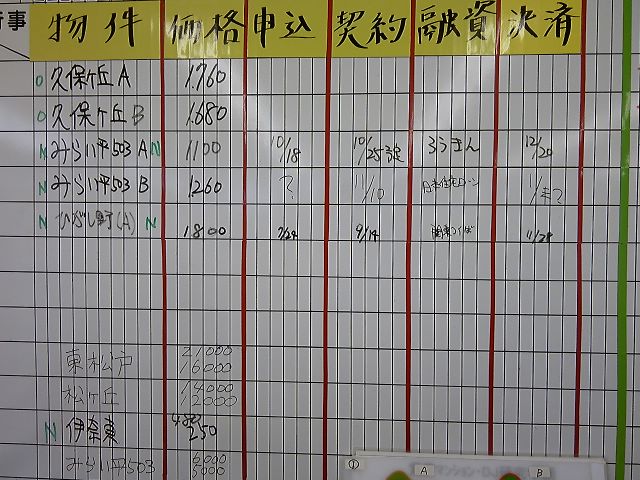 行事 物件 価格 申込 契約 融資 決済
O 久保ヶ丘A 1.760
O 久保ヶ丘B 1.680
N みらい平503 A N 1100 10/18 10/25予定 ろうきん 12/20
N みらい平503 B 1.260 ? 11/10 日本住宅ローン 11/末?
N ひがし町(A) N 1.800 7/24 9/14 関東つくば 11/28
東松戸 21000
16000
松ヶ丘 14000
12000
N 伊奈東 250
みらい平503 6000
5000
① A B
マンション